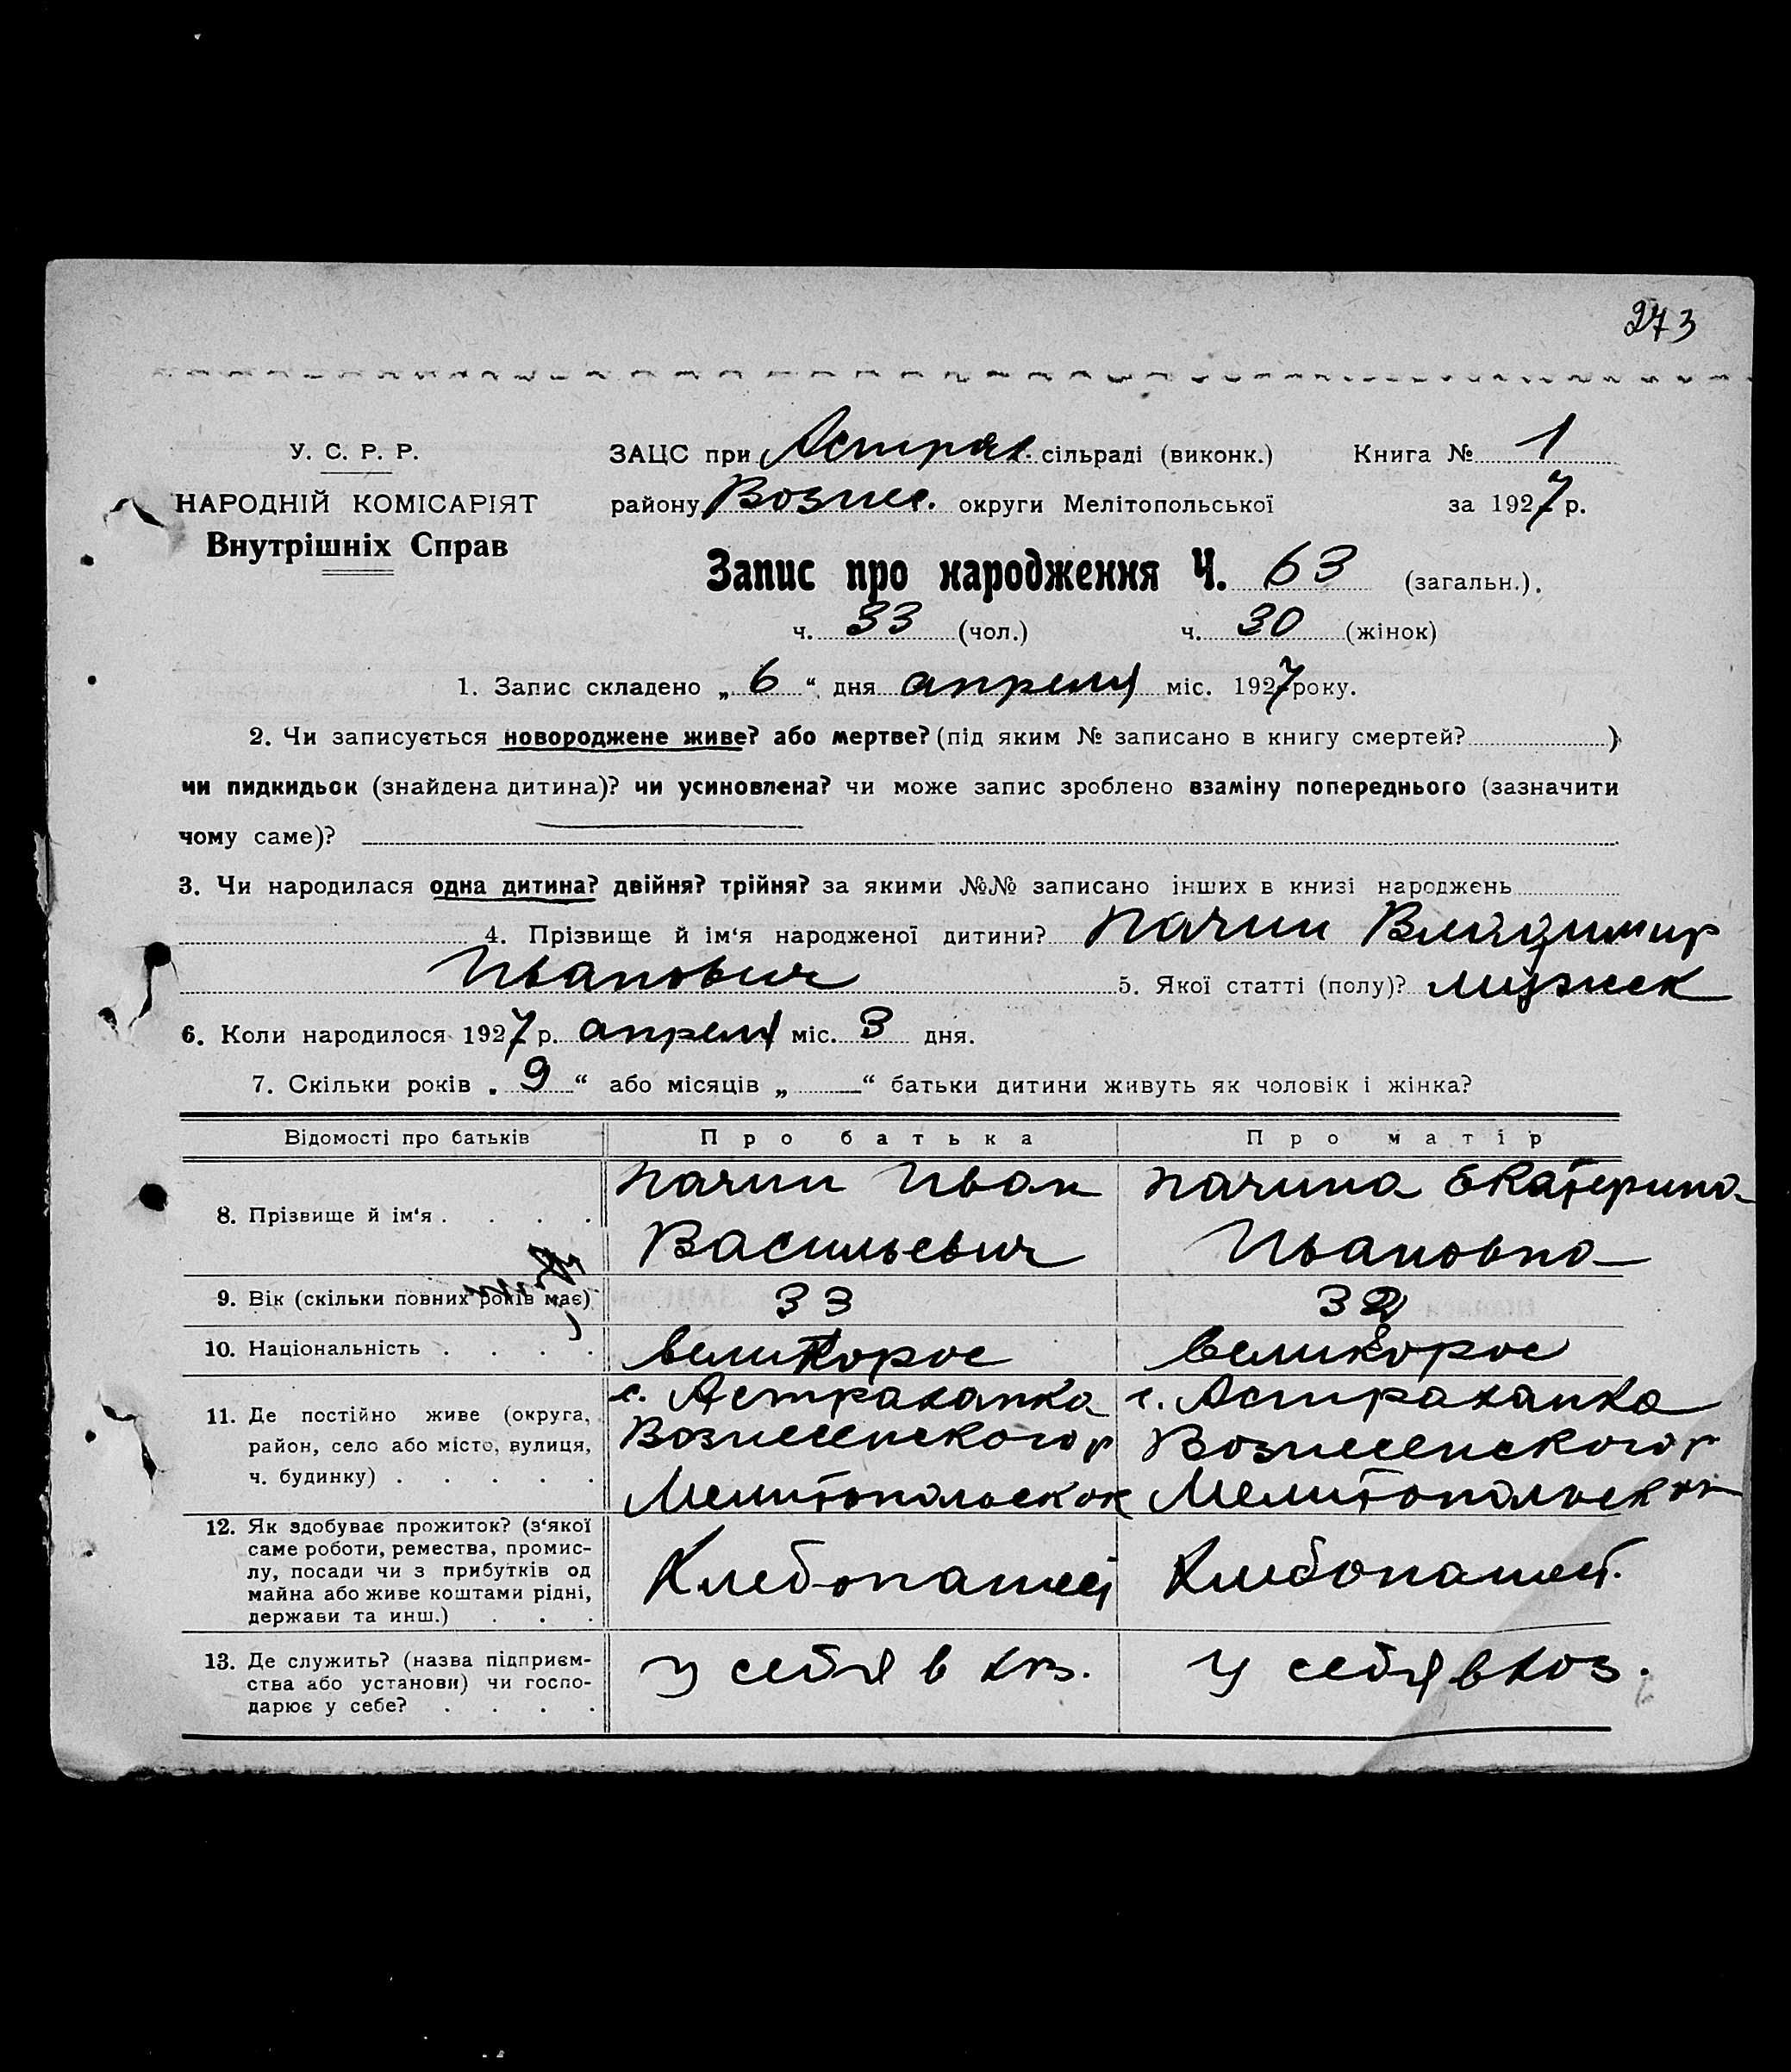 273
У. С. Р. Р.
НАРОДНІЙ КОМІСАРІЯТ
Внутрішніх Справ
ЗАЦС при Астрах. сільраді (виконк.) Книга № 1
району Вознес. округи Мелітопольської за 1927 р.
Запис про народження Ч. 63 (загальн.).
ч. 33 (чол.) ч. 30 (жінок)
1. Запис складено „ 6 “ дня апреля міс. 1927 року.
2. Чи записується новороджене живе? або мертве? (під яким № записано в книгу смертей? )
чи пидкидьок (знайдена дитина)? чи усиновлена? чи може запис зроблено взаміну попереднього (зазначити
чому саме)?
3. Чи народилася одна дитина? двійня? трійня? за якими №№ записано інших в книзі народжень
4. Прізвище й ім‘я народженої дитини? Пачин Владимир
Иванович 5. Якої статті (полу)? мужск
6. Коли народилося 1927 р. апреля міс. 3 дня.
7. Скільки років „ 9 “ або місяців „ — “ батьки дитини живуть як чоловік і жінка?
Відомості про батьків Про батька Про матір
8. Прізвище й ім‘я . . . . Пачин Иван Васильевич Пачина Екатерина Ивановна
9. Вік (скільки повних років має) 33 32
10. Національність . . . . великорос великорос
11. Де постійно живе (округа,
район, село або місто, вулиця,
ч. будинку) . . . . .
с. Астраханка
Вознесенского р
Мелитопольск ок
с. Астраханка
Вознесенского р
Мелитопольск ок
12. Як здобуває прожиток? (з‘якої
саме роботи, ремества, промис-
лу, посади чи з прибутків од
майна або живе коштами рідні,
держави та инш.) . . .
Хлебопашест
Хлебопашест.
13. Де служить? (назва підприєм-
ства або установи) чи госпо-
дарює у себе? . . . .
У себя в хоз.
У себя в хоз.